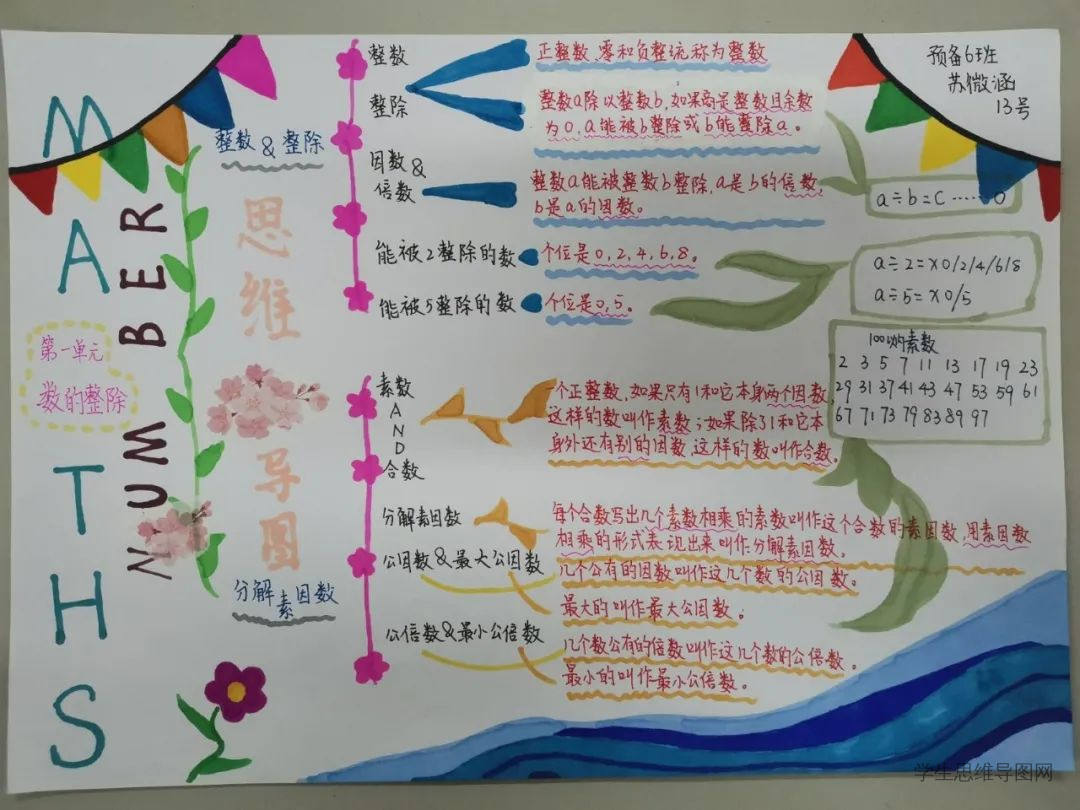 MATHS
NUMBER
第一单元
数的整除
思维导图
整数 & 整除
整数
正整数、零和负整统称为整数
整除
整数a除以整数b,如果商是整数且余数
为0,a能被b整除或b能整除a。
因数 &
倍数
整数a能被整数b整除,a是b的倍数,
b是a的因数。
能被2整除的数
个位是0,2,4,6,8。
能被5整除的数
个位是0,5。
分解素因数
素数
AND
合数
一个正整数,如果只有1和它本身两个因数,
这样的数叫作素数;如果除了1和它本
身外还有别的因数,这样的数叫作合数。
分解素因数
每个合数写出几个素数相乘的素数叫作这个合数的素因数,用素因数
相乘的形式表现出来叫作分解素因数。
公因数 & 最大公因数
几个公有的因数叫作这几个数的公因数。
最大的叫作最大公因数。
公倍数 & 最小公倍数
几个数公有的倍数叫作这几个数的公倍数。
最小的叫作最小公倍数。
预备6班
苏微涵
13号
a÷b=c……0
a÷2=x0/2/4/6/8
a÷5=x0/5
100以内素数
2 3 5 7 11 13 17 19 23
29 31 37 41 43 47 53 59 61
67 71 73 79 83 89 97
学生思维导图网